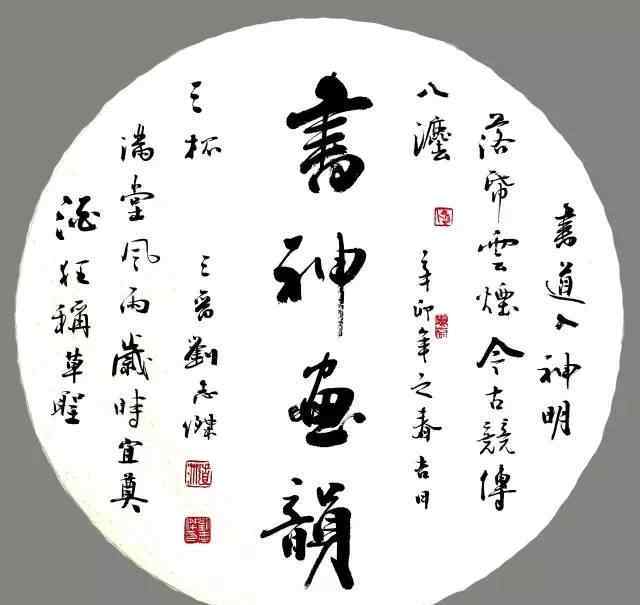 書道入神明
落帋雲煙今古競傳
八灋
辛卯年之春吉日
書神畫韻
三杯
三晉劉志傑
滿堂風雨歲時宜奠
酒狂稱草聖